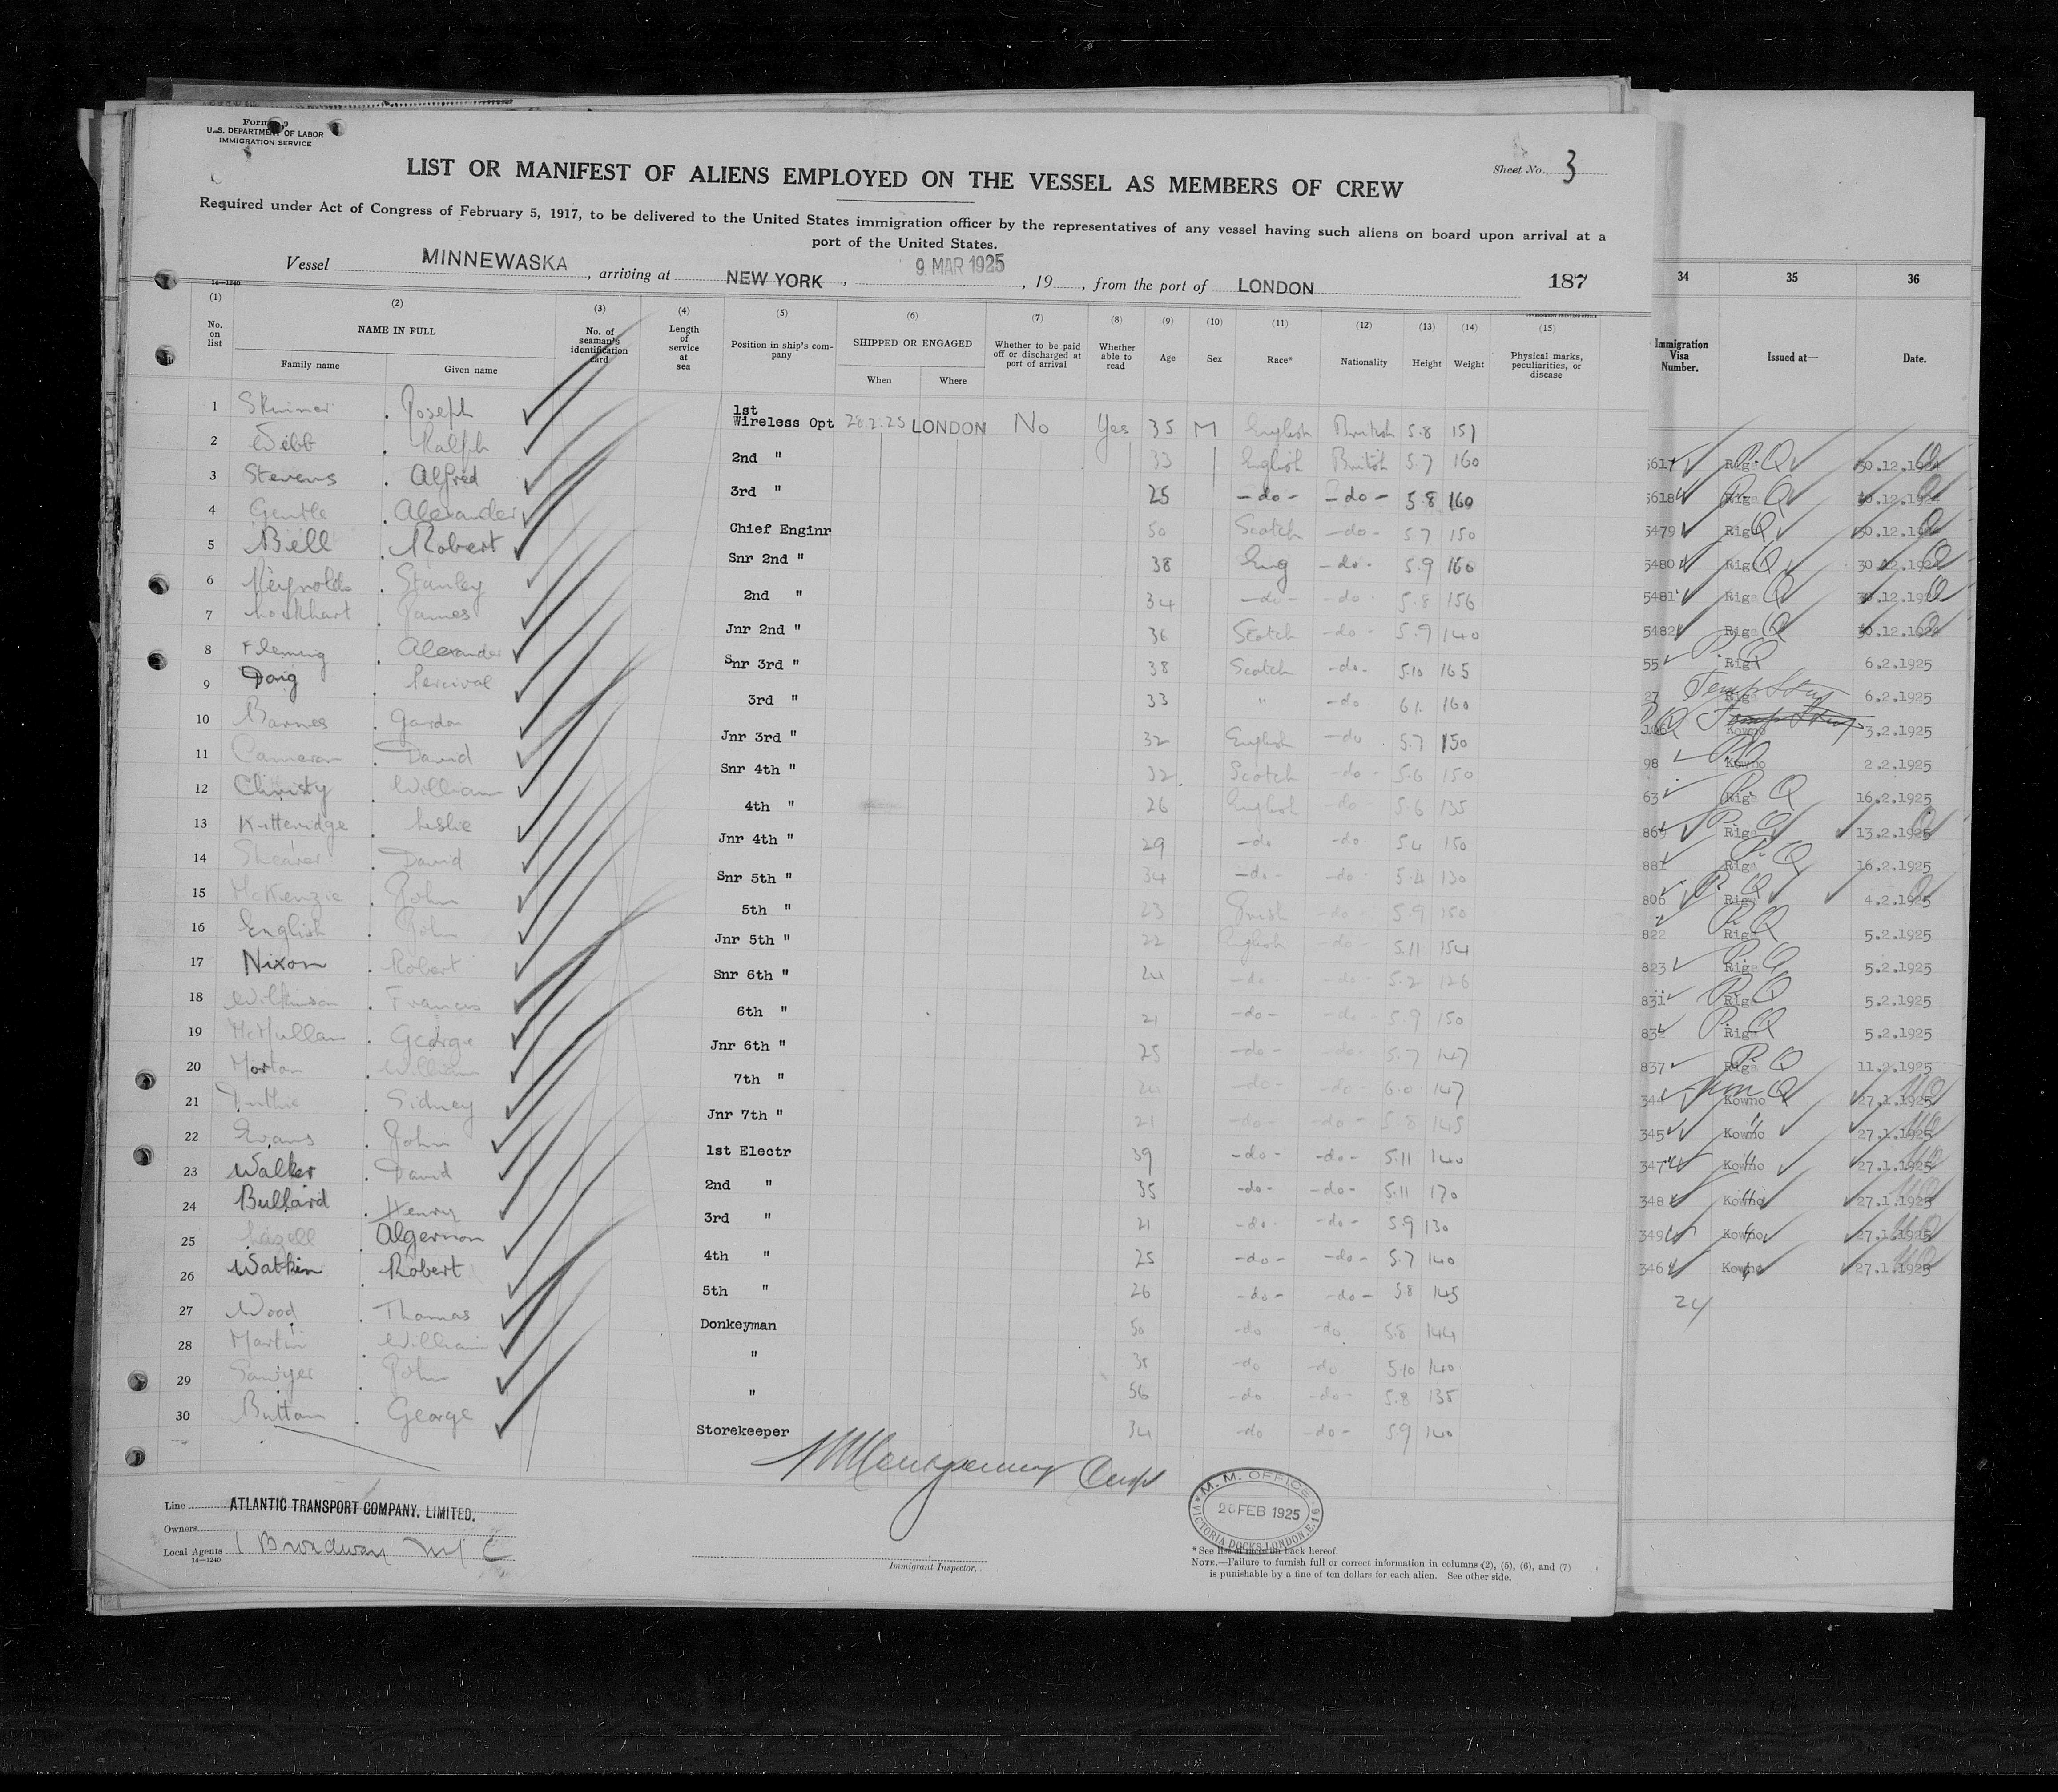 Form
U.S. DEPARTMENT OF LABOR
IMMIGRATION SERVICE
Sheet No. 3
LIST OR MANIFEST OF ALIENS EMPLOYED ON THE VESSEL AS MEMBERS OF CREW
Required under Act of Congress of February 5, 1917, to be delivered to the United States immigration officer by the representatives of any vessel having such aliens on board upon arrival at a
port of the United States.
Vessel MINNEWASKA, arriving at NEW YORK, 9 MAR 1925, 19, from the port of LONDON 187
14—1240
(1) (2) (3) (4) (5) (6) (7) (8) (9) (10) (11) (12) (13) (14) (15)
No. on list NAME IN FULL No. of seaman's identification card Length of service at sea Position in ship's company SHIPPED OR ENGAGED Whether to be paid off or discharged at port of arrival Whether able to read Age Sex Race* Nationality Height Weight Physical marks, peculiarities, or disease
Family name Given name When Where
1 Skinner Joseph 1st Wireless Opt 28.2.25 LONDON No Yes 35 M English British 5.8 151
2 Webb Ralph 2nd " 33 English British 5.7 160
3 Stevens Alfred 3rd " 25 -do- -do- 5.8 160
4 Gentle Alexander Chief Enginr 50 Scotch -do- 5.7 150
5 Bell Robert Snr 2nd " 38 Eng -do- 5.9 160
6 Reynolds Stanley 2nd " 34 -do- -do- 5.8 156
7 Lockhart James Jnr 2nd " 36 Scotch -do- 5.9 140
8 Fleming Alexander Snr 3rd " 38 Scotch -do- 5.10 165
9 Doig Percival 3rd " 33 " -do 6.1. 160
10 Barnes Gordon Jnr 3rd " 32 English -do 5.7 150
11 Cameron David Snr 4th " 32 Scotch -do- 5.6 150
12 Christy William 4th " 26 English do 5.6 135
13 Kitteridge Leslie Jnr 4th " 29 -do -do- 5.4 150
14 Shearer David Snr 5th " 34 -do- -do- 5.4 130
15 McKenzie John 5th " 23 Irish -do- 5.9 150
16 English John Jnr 5th " 22 English do- 5.11 154
17 Nixon Robert Snr 6th " 24 -do- -do- 5.2 126
18 Wilkinson Francis 6th " 21 -do- -do- 5.9 150
19 McMullan George Jnr 6th " 25 -do- -do- 5.7 147
20 Morton William 7th " 24 -do- -do 6.0 147
21 Duthie Sidney Jnr 7th " 21 -do- -do- 5.8 145
22 Evans John 1st Electr 39 -do- -do- 5.11 140
23 Walker David 2nd " 35 -do- -do- 5.11 170
24 Bullard Henry 3rd " 21 -do- -do- 5.9 130
25 Lazell Algernon 4th " 25 -do- -do- 5.7 140
26 Watkin Robert 5th " 26 -do- -do- 5.8 145
27 Wood Thomas Donkeyman 50 -do -do 5.8 144
28 Martin William " 35 -do -do 5.10 140
29 Sawyer John " 56 -do -do- 5.8 135
30 Button George Storekeeper 34 -do -do- 5.9 140
Montgomery
M. M. OFFICE
FEB 1925
VICTORIA DOCKS, LONDON, E.16
Line ATLANTIC TRANSPORT COMPANY. LIMITED.
Owners
Local Agents 1 Broadway NYC
14—1240
Immigrant Inspector.
* See list of races on back hereof.
NOTE.—Failure to furnish full or correct information in columns (2), (5), (6), and (7)
is punishable by a fine of ten dollars for each alien. See other side.
34 35 36
Immigration Visa Number. Issued at— Date.
5617 Riga 30.12.1924
5618 Riga 30.12.1924
5479 Riga 30.12.1924
5480 Riga 30.12.1924
5481 Riga 30.12.1924
5482 Riga 30.12.1924
55 Riga 6.2.1925
27 Riga 6.2.1925
106 Kowno 3.2.1925
98 Kowno 2.2.1925
63 Riga 16.2.1925
869 Riga 13.2.1925
881 Riga 16.2.1925
806 Riga 4.2.1925
822 Riga 5.2.1925
823 Riga 5.2.1925
831 Riga 5.2.1925
832 Riga 5.2.1925
837 Riga 11.2.1925
344 Kowno 27.1.1925
345 Kowno 27.1.1925
347 Kowno 27.1.1925
348 Kowno 27.1.1925
349 Kowno 27.1.1925
346 Kowno 27.1.1925
24